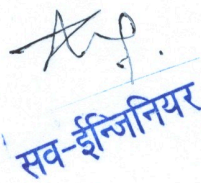 सव-ईन्जिनियर